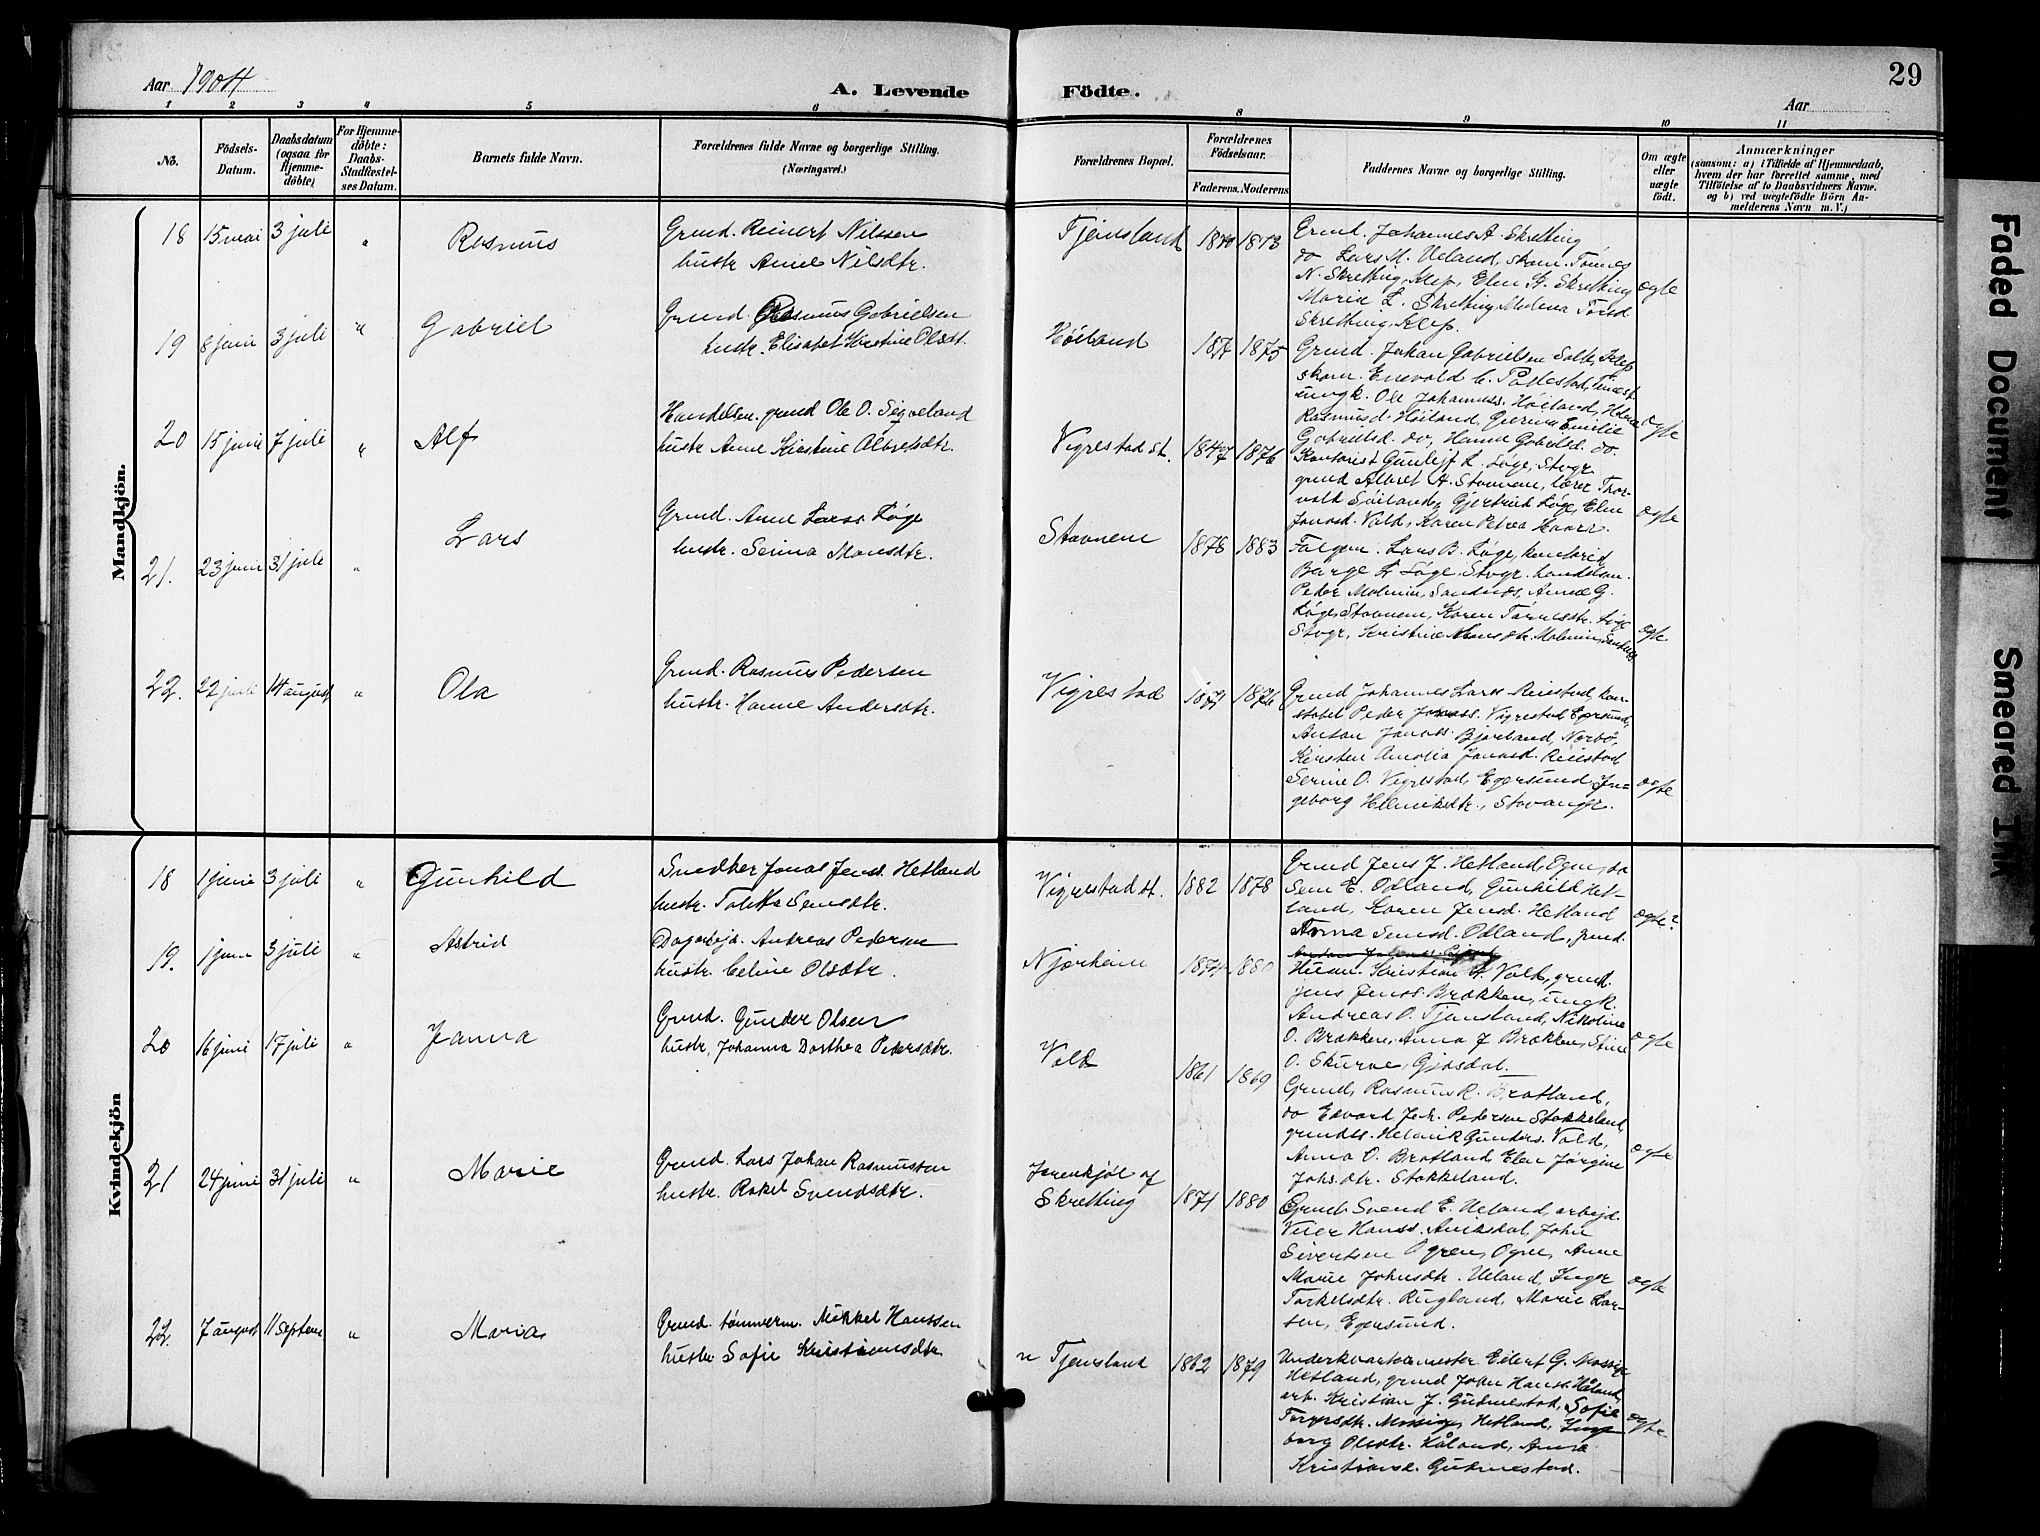 Aar 1904
A. Levende Födte.
29
Aar
1 2 3 4 5 6 8 9 10 11
No.
Födsels-Datum.
Daabsdatum (ogsaa for Hjemmedöbte).
For Hjemmedöbte: Daabs-Stadfæstelses Datum.
Barnets fulde Navn.
Forældrenes fulde Navne og borgerlige Stilling. (Næringsvei.)
Forældrenes Bopæl.
Forældrenes Födselsaar.
Faderens. Moderens.
Faddernes Navne og borgerlige Stilling.
Om ægte eller uægte födt.
Anmærkninger
(saasom: a) i Tilfælde af Hjemmedaab, hvem der har forrettet samme, med Tilföielse af to Daabsvidners Navne. og b) ved uægtefödte Börn Anmelderens Navn m. V.)
Mandkjön.
18 15 mai 3 juli " Rasmus
Grund. Reinert Nilssen
hustr. Anne Nilsdtr.
Tjensland 1873
Grund. Johannes A. Skretting
do Lars M. Ueland, skom. Tönnes
N. Skretting, Klep, Elen K. Skretting
Marie L. Skretting, Malena Torsd
Skretting, Klep.
ægte
19 8 juni 3 juli " Gabriel
Grund. Rasmus Gabrielsen
hustr. Elisabet Kirstine Olsdt.
Höiland 1875
Grund. Johan Gabrielsen Salte, Klep
skom. Enevald C.
ungk. Ole Johanness. Höiland,
Rasmusd. Höiland, Emilie
Gabrielsd. do, Hanne Gabrielsd. do
ægte
20 15 juni 7 juli " Alf
Handelsm. grund Ole O. Sigveland
hustr. Anne Kirstine Albretsdtr.
Vigrestad st. 1847 1876
Kontorist Gunleif L. Löge, Stvgr
grund Albret A. Stavnem, lærer Thor-
vald Söiland, Gjertrud Löge, Elen
Jonasd. Vold, Karen Petrea Haarr.
ægte
21. 23 juni 31 juli " Lars
Grund. Arne Larss. Löge
hustr. Serina Monsdtr.
Stavnem 1878 1883
Folgem. Lars B. Löge, kontorist
Barge L Löge, Stvgr. handelsm.
Peder Malmin, Sandnes, Anne G.
Löge, Stavnem, Karen Törresdtr. Löge
Stvgr, Kristine Monsdtr. Malmin, Sandnes
ægte
22. 22 juli 14 august " Ola
Grund. Rasmus Pedersen
hustr. Hanne Andersdtr.
Vigrestad 1871 1876
Grund Johannes Larss. Reiestad, kon-
stabel Peder Jonass. Vigrestad Egersund,
Anton Jonass. Bjorland, Nærbö,
Kirsten Amalia Jonasd. Reiestad
Serine O. Vigrestad, Egersund, In-
geborg Henriksdtr., Stavanger.
ægte
Kvindekjön
18 1 juni 3 juli " Gunhild
Snedker Jonas Jens. Hetland
hustr. Talette Semsdtr.
Vigrestad st. 1882 1878
Grund Jens J. Hetland, Ogne, do
Sem E. Odland, Gunhild Het-
land, Karen Jensd. Hetland
Anna Semsd. Odland, grund.
ægte?
19. 1 juni 3 juli " Astrid
Dagarbejd. Andreas Pedersen
hustr. Celine Olsdtr.
Njærheim 1874 1880
Husm. Kristian A. Vold, grund.
Jens Jenss. Brækken, ungk.
Andreas O. Tjensland, Nikoline
O. Brækken, Anna J Brækken, Stine
O. Skurve, Gjæsdal.
ægte
20 16 juni 17 juli " Janna
Grund. Gunder Olsen
hustr, Johanna Dorthea Pedersdtr.
Vold 1861 1869
Grund, Rasmus R. Bratland,
do Edvard Joh. Pedersen Stokkeland
grundes. Henrik Gunders. Vold,
Anna O. Bratland Elen Jörgine
Johs.dtr. Stokkeland.
ægte
21 24 juni 31 juli " Marie
Grund. Lars Johan Rasmussen
hustr. Rakel Svendsdtr.
Jærenkjöl af
Skretting 1871 1880
Grund Svend E. Ueland, arbejd.
Veier Hanss. Aniksdal, John
Sivertsen Ogren, Ogne, Anne
Marie Johnsdtr. Ueland, Inger
Torkelsdtr. Rugland, Marie Lar-
sen, Egersund.
ægte
22. 7 august 11 septem " Maria
Grund. tömmerm. Mikkel Hanssen
hustr Sofie Kristiansdtr.
n Tjensland 1862 1879
Underkvartermester Eilert G. Mossige
Hetland, grund John Hans. Håland
arb. Kristian J. Gudmestad, Sofie
Torgersdtr. Mossige, Hetland, Inge
borg Olsdtr. Håland, Anna
Kristiansd. Gudmestad.
ægte
Faded Document
Smeared Ink